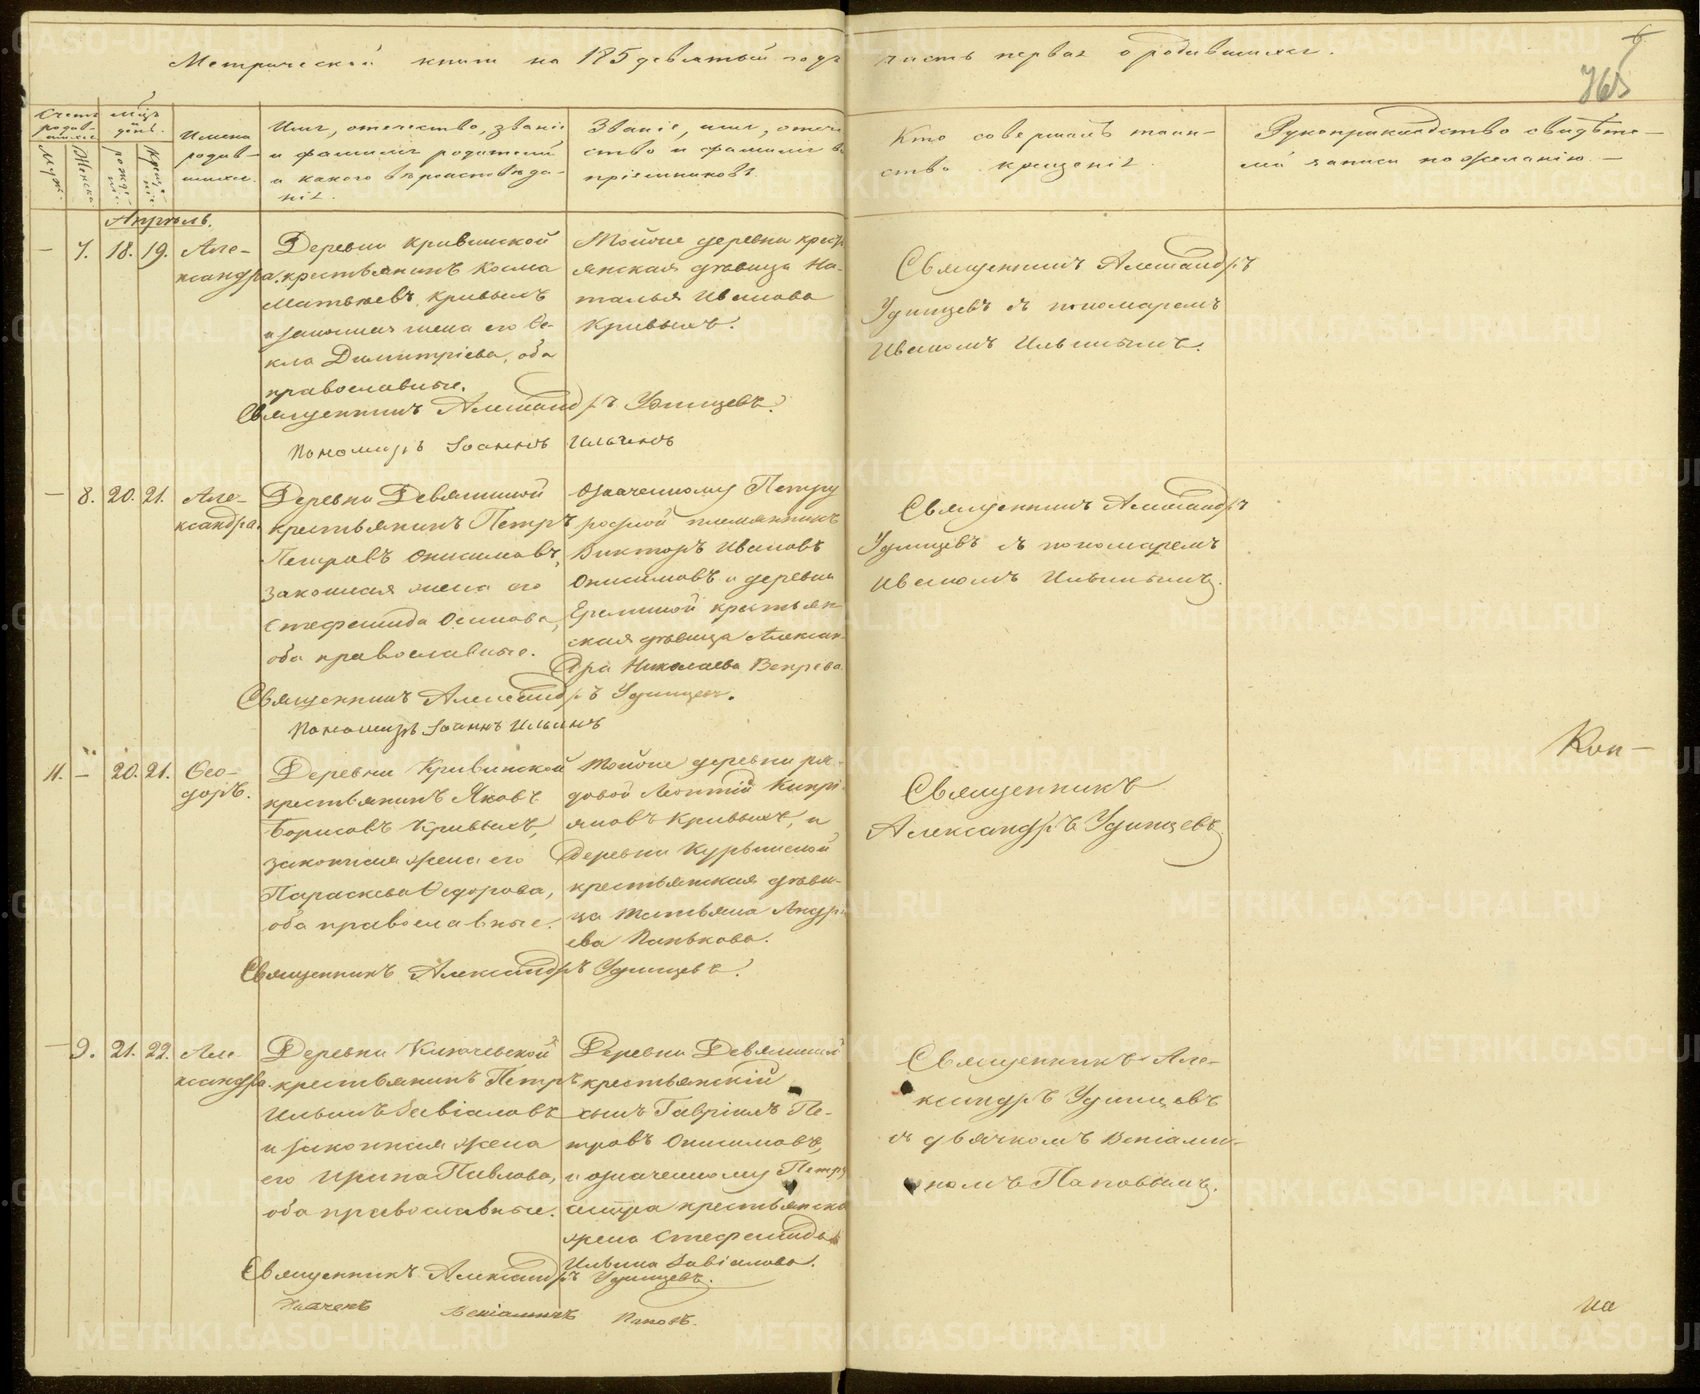 Метрической книги на 185девятый годъ часть первая о родившихся.
6
765
Счетъ родив-шихся
Мѣсяцъ день.
Муж.
Женска.
рожде-нія
Креще-нія
Имена
родив-
шихся.
Имя, отечество, званіе
и фамилія родителей
и какого вѣроисповѣда-
нія.
Званіе, имя, отече
ство и фамилія во
пріемниковъ.
Кто совершалъ таин-
ство крещенія.
Рукоприкладство свидѣте-
лей записи по желанію. —
Апрель.
— 7. 18. 19.
Але-
ксандра.
Деревни Кривинской
крестьянинъ Косма
Матвѣевъ Кривыхъ
и законная жена его Ѳе-
кла Димитріева, оба
православные.
Тойже деревни крестья
янская дѣвица На-
талья Иванова
Кривыхъ.
Священникъ Александръ
Удинцевъ съ пономаремъ
Иваномъ Ильинымъ.
Священникъ Александръ Удинцевъ.
Пономарь Іоаннъ Ильинъ
— 8. 20. 21.
Але-
ксандра.
Деревни Девяшиной
крестьянинъ Петръ
Петровъ Онисимовъ,
законная жена его
Стефанида Осипова,
оба православные.
Означенному Петру
родной племянникъ
Викторъ Ивановъ
Онисимовъ и деревни
Ереминой крестьян
ская дѣвица Алексан-
дра Николаева Вепрева
Священникъ Александръ
Удинцевъ съ пономаремъ
Иваномъ Ильинымъ.
Священникъ Александръ Удинцевъ.
Пономарь Іоаннъ Ильинъ
11. — 20. 21.
Ѳео-
доръ.
Деревни Кривинской
крестьянинъ Яковъ
Борисовъ Кривыхъ,
законная жена его
Параскева Ѳедорова,
оба православные.
Тойже деревни ря-
довой Леонтій Кипрі-
яновъ Кривыхъ, и
Деревни Курьинской
крестьянская дѣви-
ца Татьяна Андре
ева Панькова.
Священникъ
Александръ Удинцевъ
Священникъ Александръ Удинцевъ.
— 9. 21. 22.
Але
ксандра.
Деревни Ключевской
крестьянинъ Петръ
Ильинъ Завіаловъ
и законная жена
его Ирина Павлова,
оба православные.
Деревни Девяшиной
крестьянскій
сынъ Гавріилъ Пе-
тровъ Онисимовъ,
и означенному Петру
сестра крестьянска
жена Стефанида
Ильина Завіалова.
Священникъ Але-
ксандръ Удинцевъ
съ дьячкомъ Веніами-
номъ Поповымъ.
Священникъ Александръ Удинцевъ.
Дьячекъ Веніаминъ Поповъ.
Коп-
на
METRIKI.GASO-URAL.RU